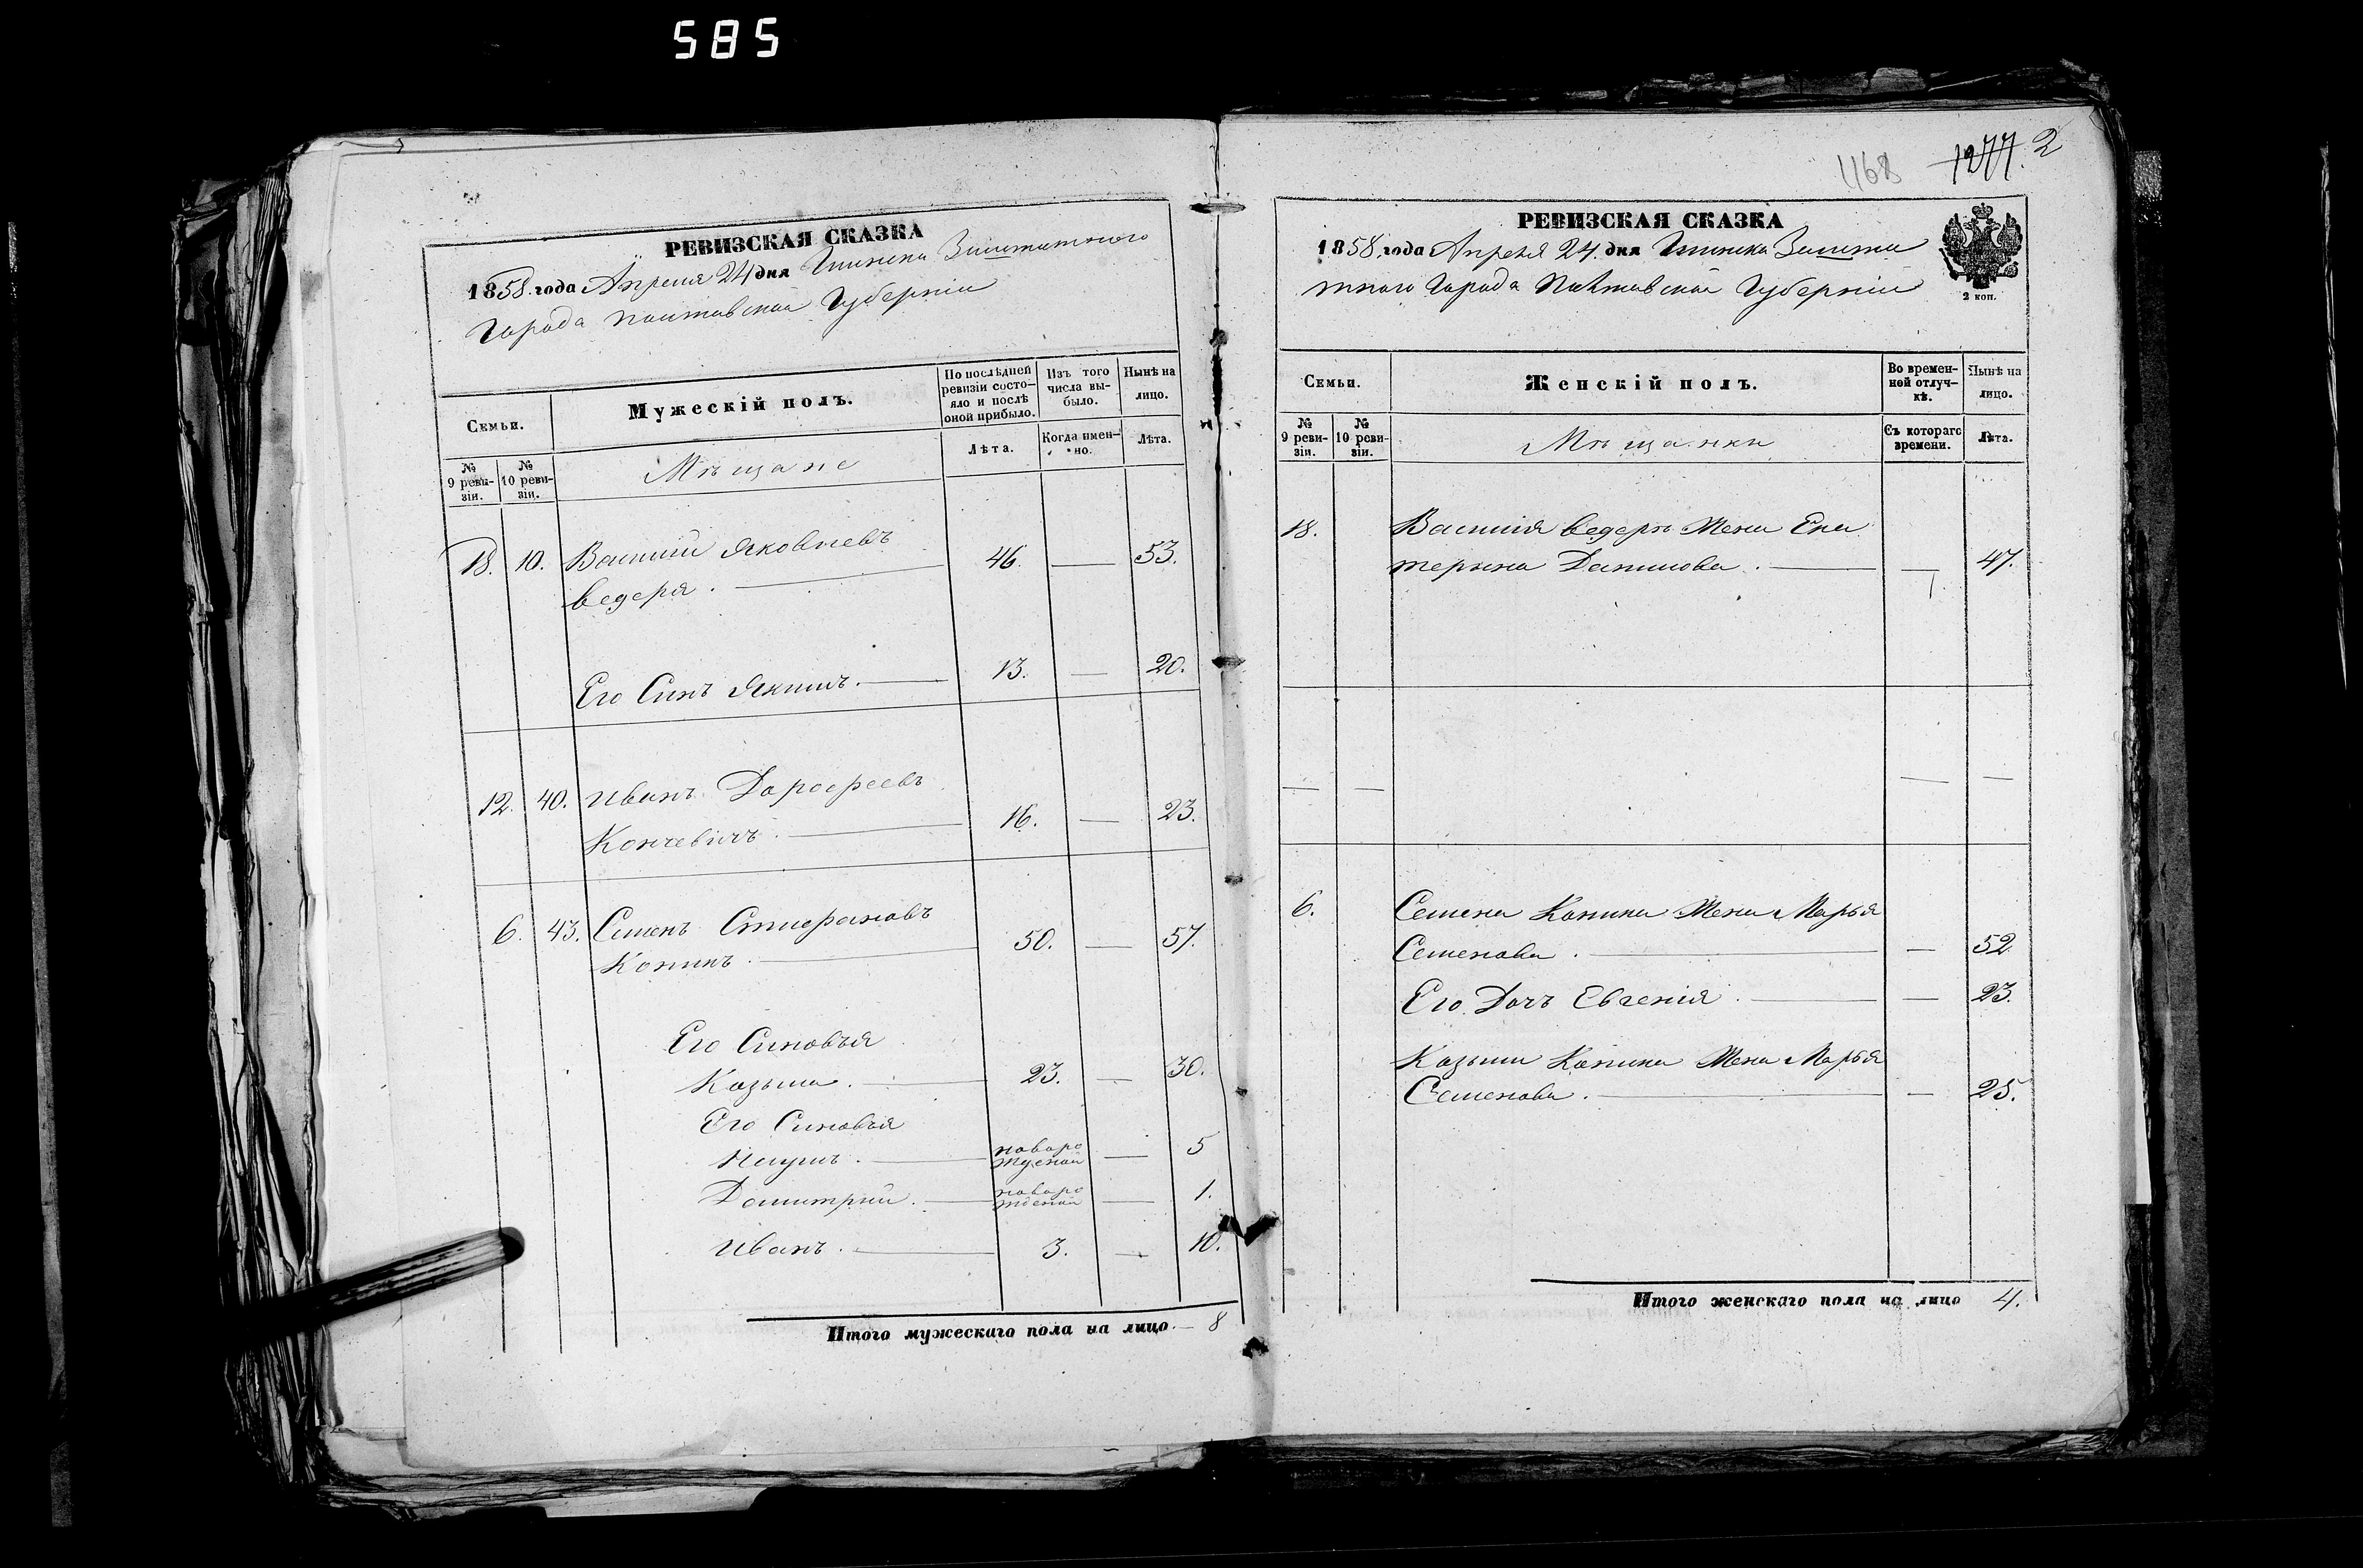 585
РЕВИЗСКАЯ СКАЗКА
1858 года Апреля 24 дня
Города Полтавской Губерніи
Семьи.
Мужескій полъ.
По послѣдней ревизіи состо-
яло и послѣ
оной прибыло.
Изъ того
числа вы-
было.
Нынѣ на
лицо.
№
9 реви-
зіи.
№
10 реви-
зіи.
Мѣщане
Лѣта.
Когда имен-
но.
Лѣта.
18. 10. Василій Яковлевъ
ведеря. — 46. — 53.
Его Синъ Якимъ. — 13. — 20.
12. 40. Иванъ Дорофеевъ
Кончевичъ. — 16. — 23.
6. 43. Семенъ Стиефановъ
Конинъ. — 50. — 57.
Его Синовья
Козьма. — 23. — 30.
Его Синовья
новоро
ждений — 5
Домитрий. — новоро
ждений — 1.
Иванъ. — 3. — 10.
Итого мужескаго пола на лицо. — 8
1168 1277. 2
РЕВИЗСКАЯ СКАЗКА
1858. года Апреля 24. дня
тного Города Полтавской Губерніи
2 коп.
Семьи.
Женскій полъ.
Во времен-
ной отлуч-
кѣ.
Нынѣ на
лицо.
№
9 реви-
зіи.
№
10 реви-
зіи.
Мѣщанки
Съ котораго
времени.
Лѣта.
18. Василия ведеры Жена Ека
терина Данилова. — — 47.
— — — —
6. Семена Конина Жена Марья
Семенова. — — 52
Его Дочъ Евгенія. — — 23.
Козьми Конина Жена Марья
Семенова. — — 25.
Итого женскаго пола на лицо 4.